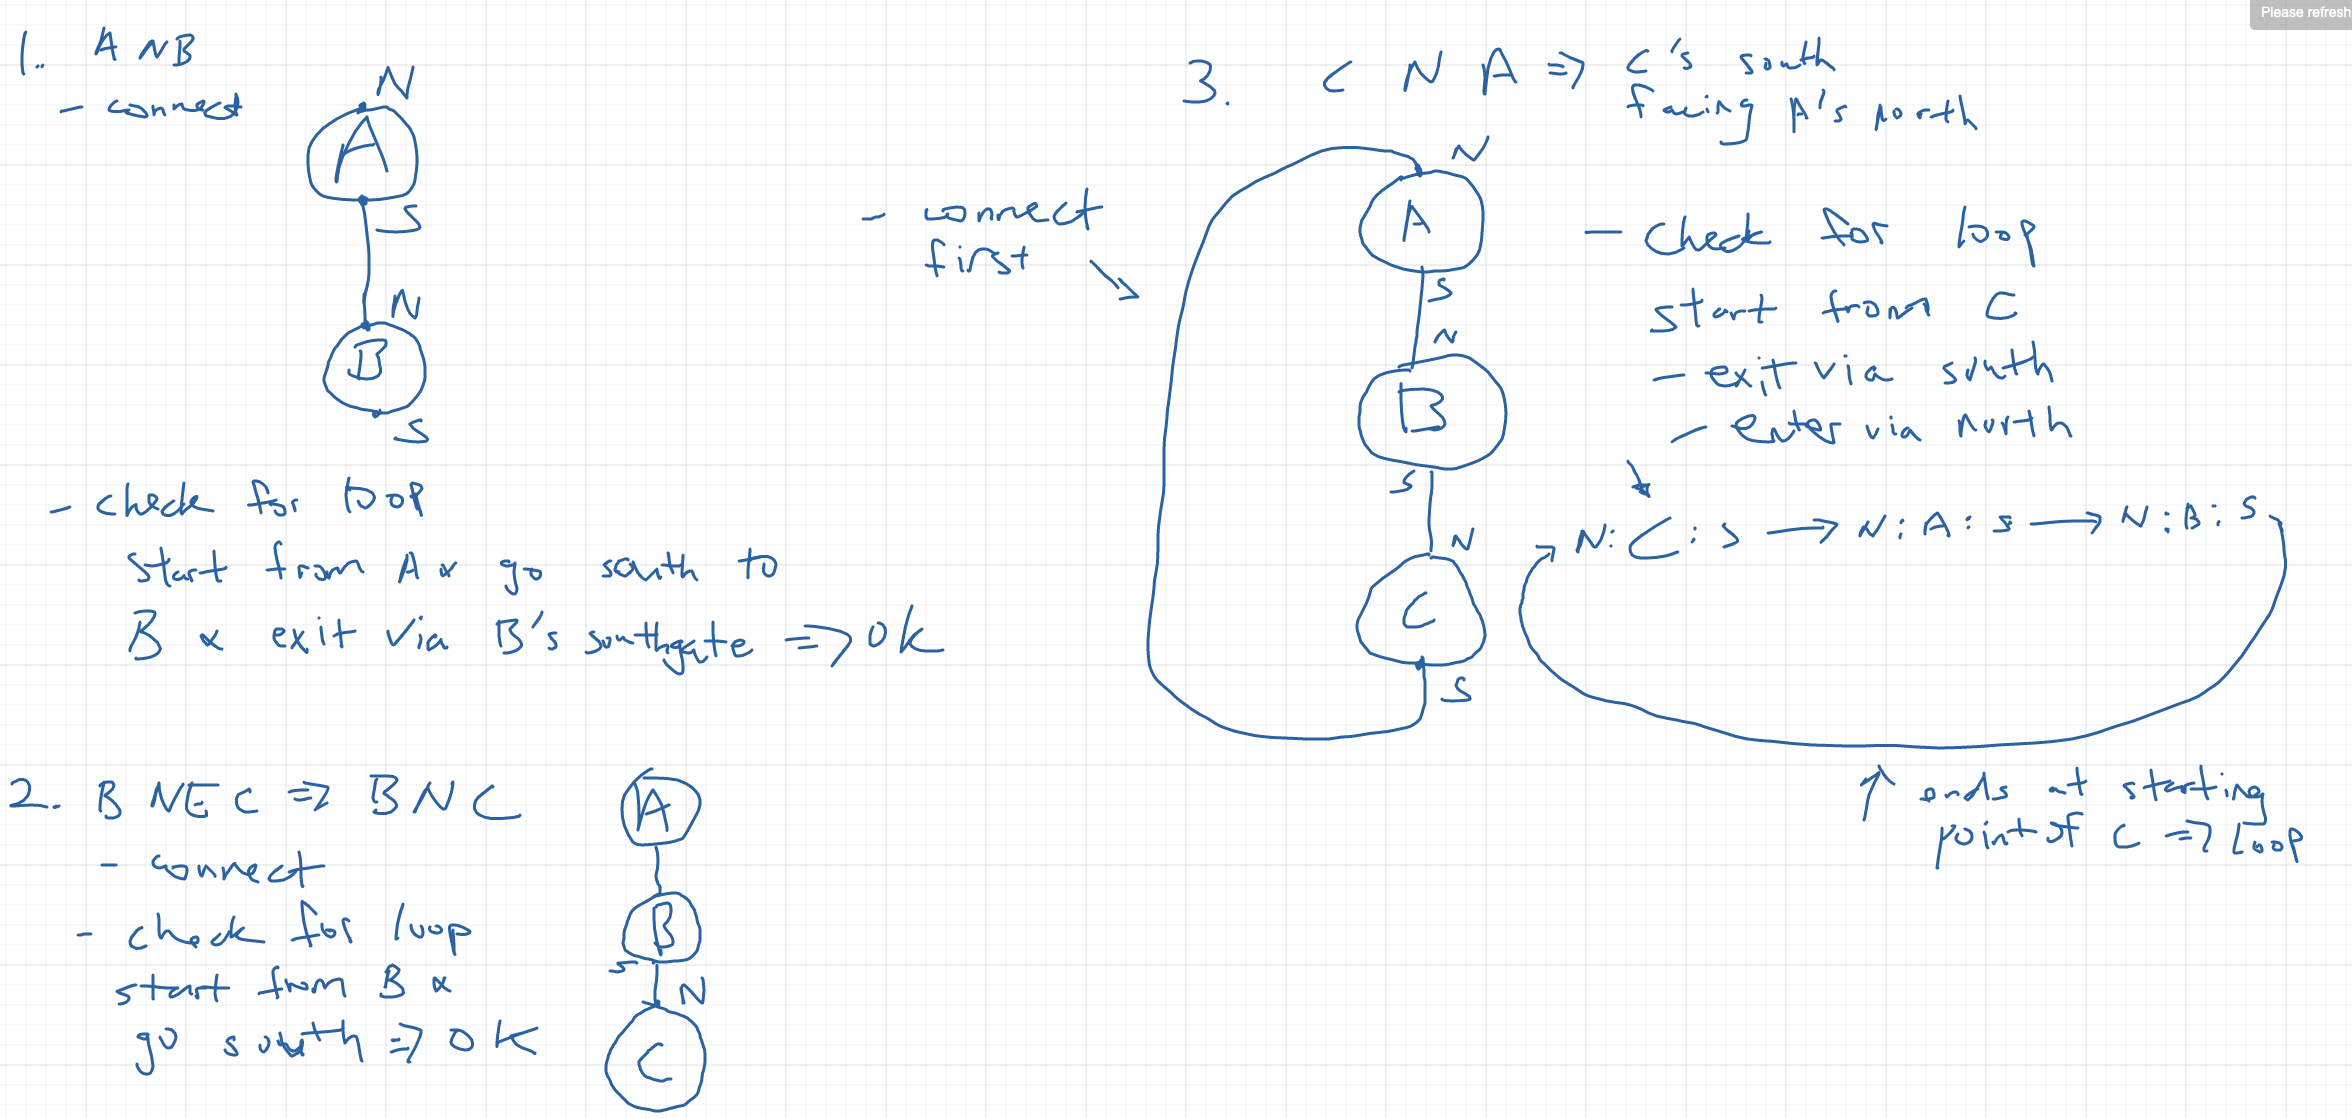 Please refresh
1. A N B
- connect
N
A
S
N
B
S
- check for loop
start from A & go south to
B & exit via B's southgate => ok
2. B NE C => B N C
- connect
- check for loop
start from B &
go south => OK
A
B
S
N
C
3. C N A => C's south
facing A's north
- connect
first
N
A
S
N
B
S
N
C
S
- check for loop
start from C
- exit via south
- enter via north
N: C: S → N: A: S → N: B: S
ends at starting
point of C => Loop